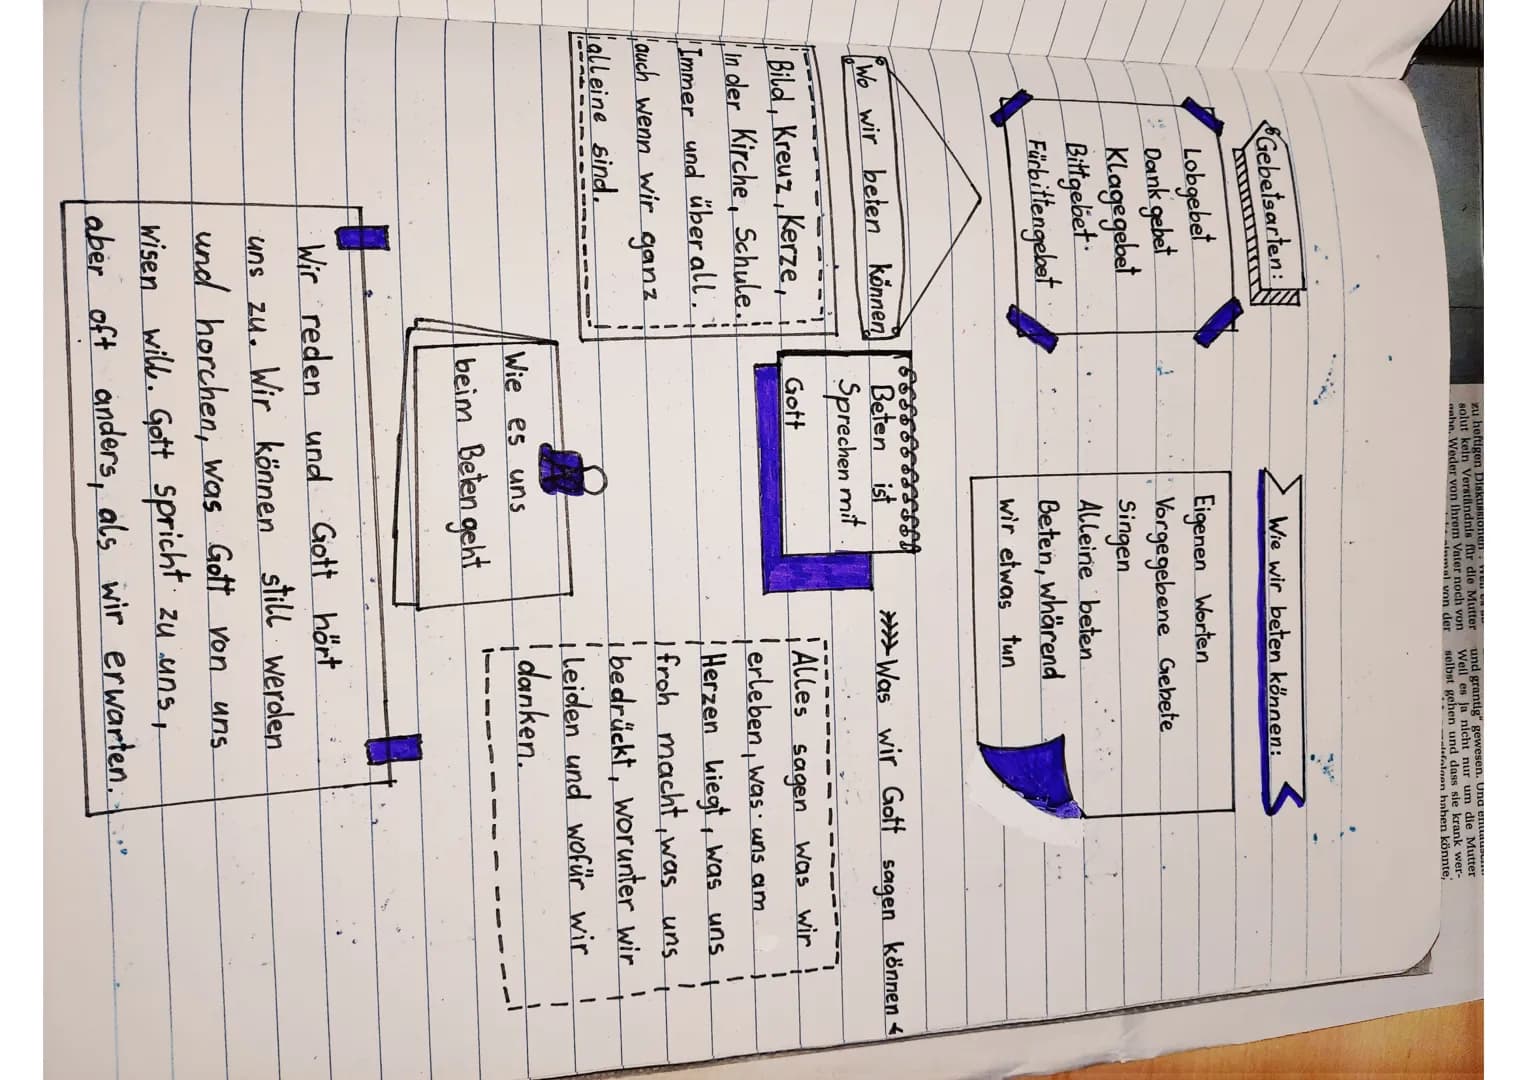 Gebetsarten:
Lobgebet
Dankgebet
Klagegebet
Bittgebet.
Fürbittengebet
Wie wir beten können:
Eigenen Worten
Vorgegebene Gebete
Singen
Alleine beten
Beten, whärend
wir etwas tun
Wo wir beten können
Bild, Kreuz, Kerze,
In der Kirche, Schule.
Immer und überall.
auch wenn wir ganz
alleine sind.
Beten ist
Sprechen mit
Gott
Was wir Gott sagen können
Alles sagen was wir
erleben, was uns am
Herzen liegt, was uns
froh macht, was uns
bedrückt, worunter wir
leiden und wofür wir
danken.
Wie es uns
beim Beten geht
Wir reden und Gott hört
uns zu. Wir können still werden
und horchen, was Gott von uns
wisen will. Gott spricht zu uns,
aber oft anders, als wir erwarten.
zu heftigen Diskussionen
solut kein Verständnis für die Mutter
gabe. Weder von ihrem Vater noch von
einmal von der
und grantig" gewesen. Und
Weil es ja nicht nur um die Mutter
selbst gehen und dass sie krank wer-
haben könnte,